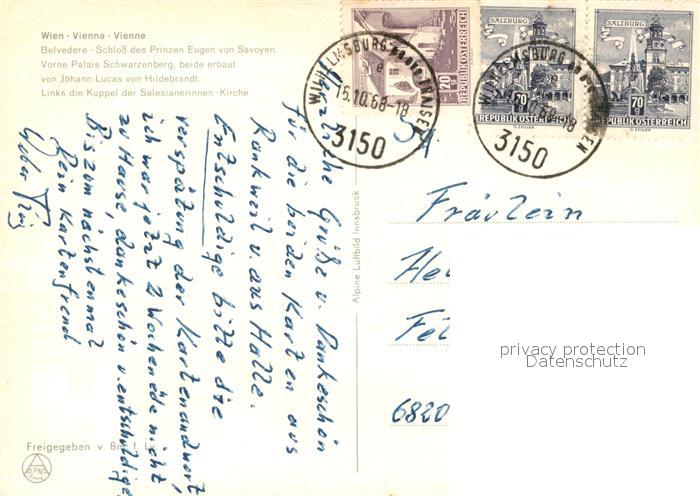 Wien - Vienna - Vienne
Belvedere - Schloß des Prinzen Eugen von Savoyen.
Vorne Palais Schwarzenberg, beide erbaut
von Johann Lucas von Hildebrandt.
Links die Kuppel der Salesianerinnen - Kirche
Herzliche Grüße u. Dankeschön
für die beiden Karten aus
Rankweil u. aus Halle.
Entschuldige bitte die
verspätung der Kartenandwort,
ich war jetzt 2 Wochenende nicht
zu Hause, dankeschön u. entschuldige
Bis zum nächstenmal
Dein Kartenfreund
Freigegeben v. Bm. f. Lv.
ALPINE
Alpine Luftbild Innsbruck
20
REPUBLIK ÖSTERREICH
SALZBURG
70
REPUBLIK ÖSTERREICH
SALZBURG
70
REPUBLIK ÖSTERREICH
WILHELMSBURG an der TRAISEN
e
15.10.68-18
3150
WILHELMSBURG an der TRAISEN
e
15.10.68-18
3150
An
Fräulein
6820
privacy protection
Datenschutz